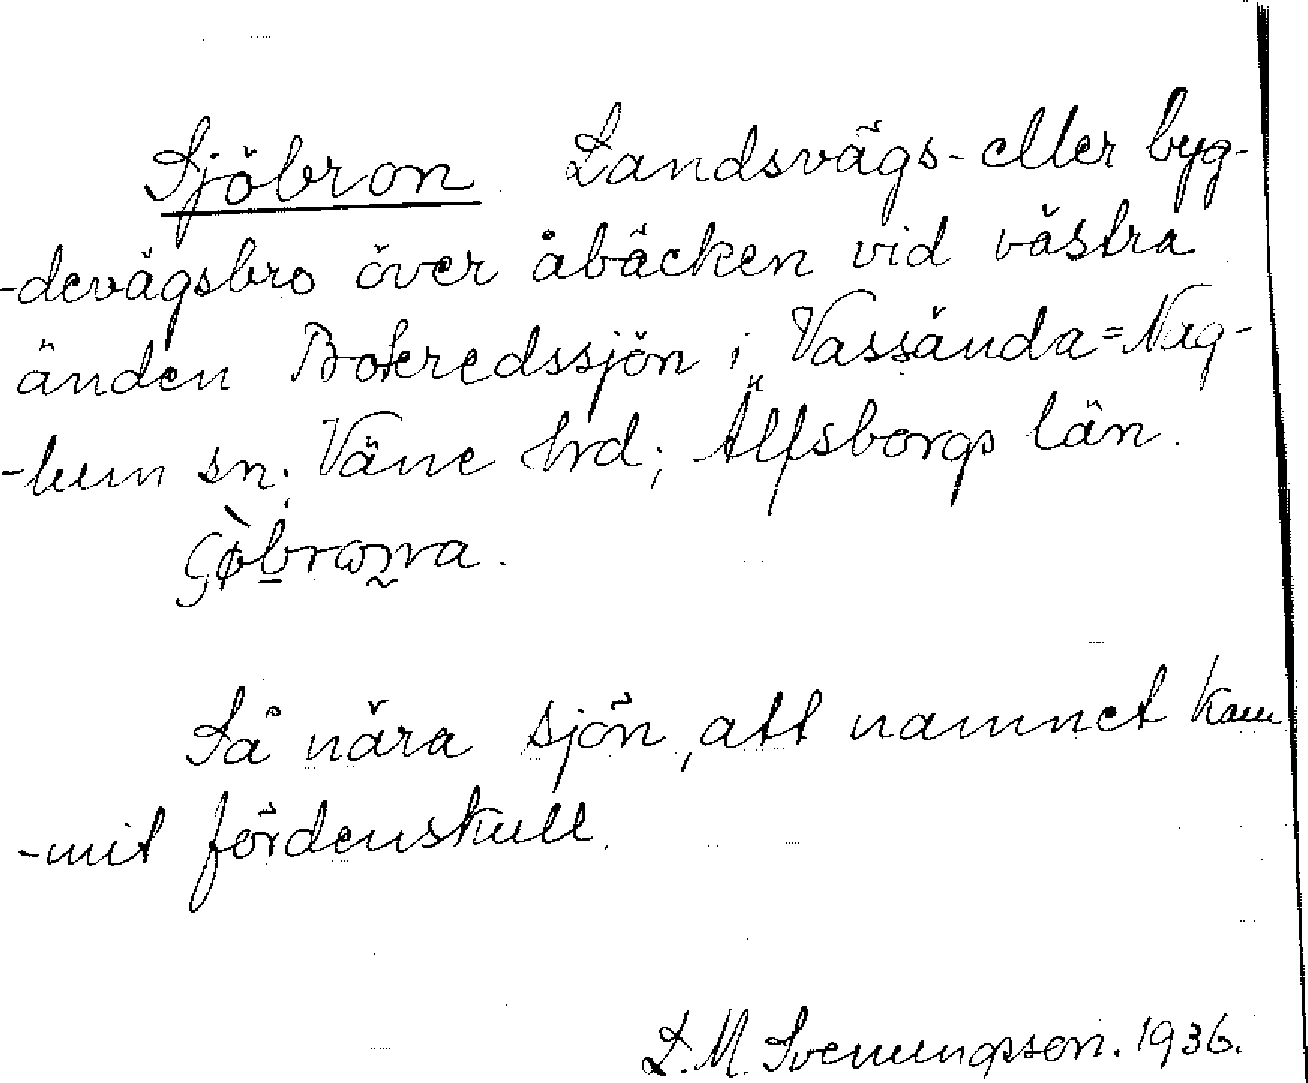 Sjöbron. Landsvägs- eller byg-
-devägsbro över åbäcken vid västra
änden Bokredssjön i Vassända=Nag-
-lum sn. Väne hrd; Älfsborgs län.
Så nära sjön, att namnet kom
-mit fördenskull.
L. M. Svenungsson. 1936.